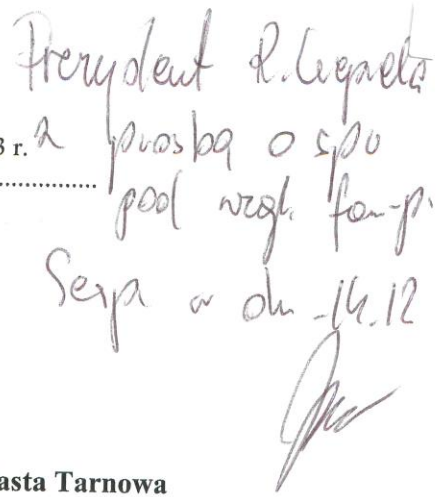 Prezydent R.
3 r. z prośbą o spr
....................
pod wzgl. fo-p.
Sesja w dn. 14.12
asta Tarnowa